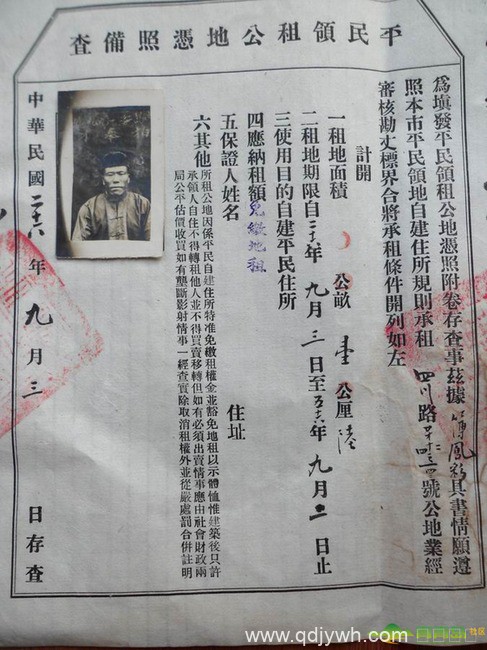 平民領租公地憑照備查
為填發平民領租公地憑照附卷存查事茲據 鳳 具書情願遵
照本市平民領地自建住所規則承租 四川路 號公地業經
審核勘丈標界合將承租條件開列如左
計開
一租地面積 公畝 壹 公厘 陸
二租地期限自 年 九 月 三 日至 年 九 月 二 日止
三使用目的自建平民住所
四應納租額 免繳地租
五保證人姓名 住址
六其他
所租公地因係平民自建住所特准免繳租權金並豁免地租以示體恤惟建築後只許
承領人自住不得轉租他人並不得買賣移轉但如有必須出賣情事應由社會財政兩
局公平估價收買如有壟斷影射情事一經查實除取消租權外並從嚴處罰合併註明
中華民國 二十六 年 九 月 三 日存查
www.qdjywh.com
社区